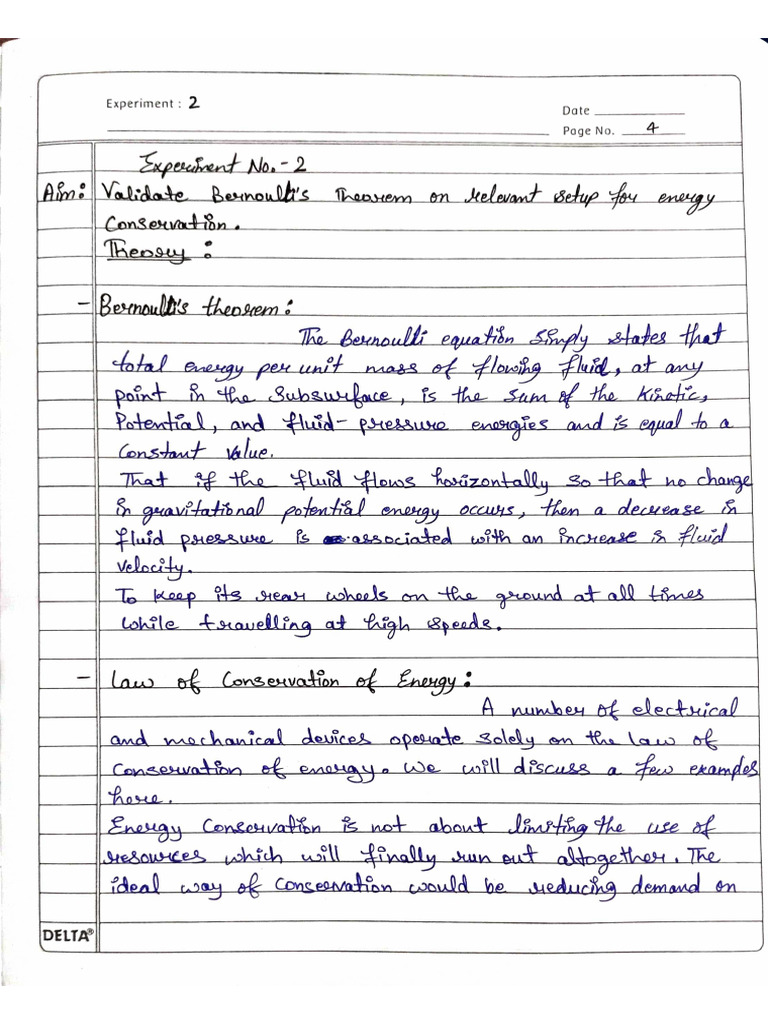 Experiment : 2
Date
Page No. 4
Experiment No.-2
Aim: Validate Bernoulli's Theorem on relevant setup for energy
Conservation.
Theory :
- Bernoulli's theorem:
The Bernoulli equation simply states that
total energy per unit mass of flowing fluid, at any
point in the subsurface, is the sum of the kinetic,
Potential, and fluid-pressure energies and is equal to a
Constant value.
That if the fluid flows horizontally so that no change
in gravitational potential energy occurs, then a decrease in
fluid pressure is associated with an increase in fluid
velocity.
To keep its rear wheels on the ground at all times
while travelling at high speeds.
- Law of Conservation of Energy:
A number of electrical
and mechanical devices operate solely on the law of
Conservation of energy. We will discuss a few examples
here.
Energy Conservation is not about limiting the use of
resources which will finally run out altogether. The
ideal way of Conservation would be reducing demand on
DELTA®